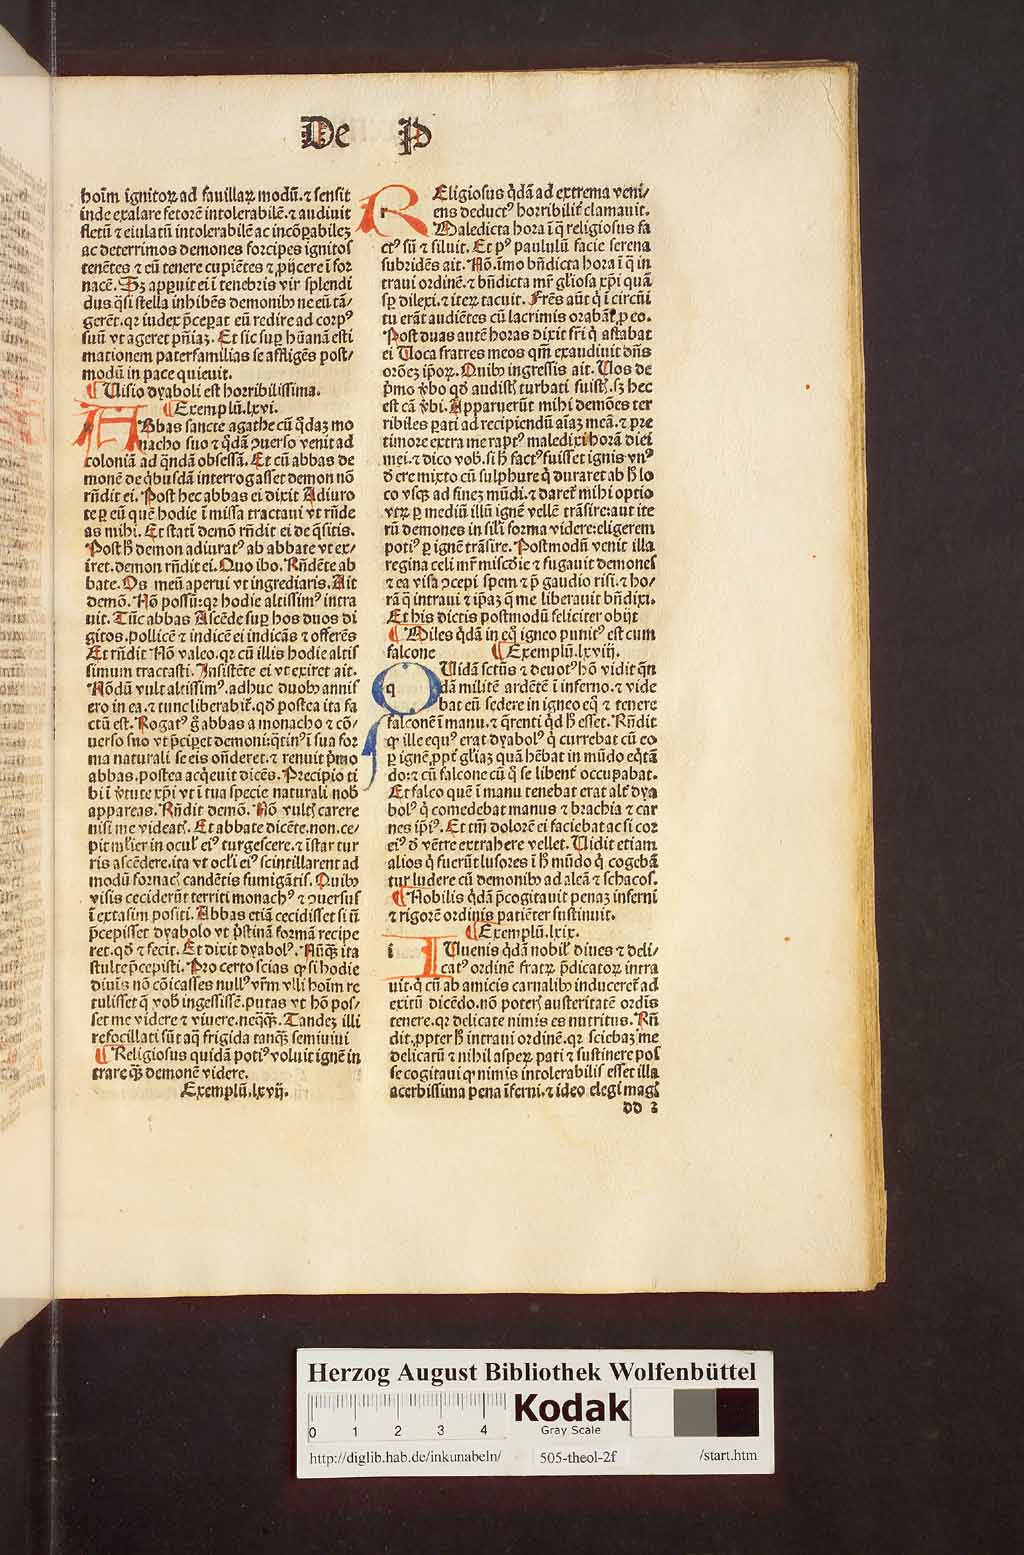 De P
hoīm ignitoꝝ ad fauillaꝝ modū. ⁊ sensit
inde exalare fetorē intolerabilē. ⁊ audiuit
fletū ⁊ eiulatū intolerabilē ac incōꝑabilēꝫ
ac deterrimos demones forcipes ignitos
tenētes ⁊ eū tenere cupiētes ⁊ ꝓijcere ī for
nacē. Sꝫ apꝑuit ei ī tenebris vir splendi
dus q̄si stella inhibēs demonibꝰ ne eū tā⸗
gerēt. qꝛ iudex p̄ceꝑat eū redire ad corpꝰ
suū vt ageret pn̄iaꝫ. Et sic suꝑ hūanā esti
mationem paterfamilias se affligēs post⸗
modū in pace quieuit.
¶ Uisio dyaboli est horribilissima.
¶ Exemplū. lxvi.
ABbas sancte agathe cū q̄daꝫ mo
nacho suo ⁊ q̄dā ↄuerso venit ad
coloniā ad q̄ndā obsessā. Et cū abbas de
monē de q̄busdā interrogasset demon nō
rn̄dit ei. Post hec abbas ei dixit Adiuro
te ꝑ eū quē hodie ī missa tractaui vt rn̄de
as mihi. Et statī demō rn̄dit ei de q̄sitis.
Post h̄ demon adiuratꝰ ab abbate vt ex⸗
iret. demon rn̄dit ei. Quo ibo. Rn̄dēte ab
bate. Os meū aperui vt ingrediaris. Ait
demō. Nō possū: qꝛ hodie altissimꝰ intra
uit. Tūc abbas Ascēde suꝑ hos duos di
gitos. pollicē ⁊ indicē ei indicās ⁊ offerēs
Et rn̄dit Nō valeo. qꝛ cū illis hodie altis
simum tractasti. Insistēte ei vt exiret ait.
Nōdū vult altissimꝰ. adhuc duobꝰ annis
ero in ea. ⁊ tunc liberabit̄. qd̄ postea ita fa
ctū est. Rogatꝰ g̊ abbas a monacho ⁊ cō⸗
uerso suo vt p̄ciꝑet demoni: q̄tinꝰ ī sua for
ma naturali se eis on̄deret. ⁊ renuit p̄mo
abbas. postea acq̄euit dicēs. Precipio ti
bi ī v̓tute xp̄i vt ī tua specie naturali nob̄
appareas. Rn̄dit demō. Nō vultꝭ carere
nisi me videatꝭ. Et abbate dicēte. non. ce⸗
pit ml̓ier in ocul̓ eiꝰ turgescere. ⁊ īstar tur
ris ascēdere. ita vt ocl̓i eiꝰ scintillarent ad
modū fornacꝭ candētis fumigātis. Quibꝰ
visis ceciderūt territi monachꝰ ⁊ ↄuersus
ī extasim positi. Abbas etiā cecidisset si n̄
p̄cepisset dyabolo vt p̄stinā formā recipe
ret. qd̄ ⁊ fecit. Et dixit dyabolꝰ. Nūq̄ꝫ ita
stulte p̄cepisti. Pro certo scias ꝙ si hodie
diuīs nō cōicasses nullꝰ vr̄m vlli hoīm re
tulisset q̄ vob̄ ingessissē. putas vt hō pos⸗
set me videre ⁊ viuere. neq̄q̄ꝫ. Tandeꝫ illi
refocillati sūt aq̄ frigida tanq̄ꝫ semiuiui
¶ Religiosus quidā potiꝰ voluit ignē in
trare q̄ꝫ demonē videre.
Exemplū. lxvij.
REligiosus q̄dā ad extrema veni⸗
ens deductꝰ horribilit̄ clamauit.
Maledicta hora ī q̄ religiosus fa
ctꝰ sū ⁊ siluit. Et pꝰ paululū facie serena
subridēs ait. Nō. īmo bn̄dicta hora ī q̄ in
traui ordinē. ⁊ bn̄dicta mr̄ gl̓iosa xp̄i quā
sꝑ dilexi. ⁊ iteꝝ tacuit. Frēs aūt q̄ ī circūi
tu erāt audiētes cū lacrimis orabāt ꝓ eo.
Post duas autē horas dixit fr̄i q̄ astabat
ei Uoca fratres meos qm̄ exaudiuit dn̄s
orōeꝫ ip̄oꝝ. Quibꝰ ingressis ait. Uos de
p̄mo v̓bo qd̄ audistꝭ turbati fuistꝭ. sꝫ hec
est cā v̓bi. Apparuerūt mihi demōes ter
ribiles ꝑati ad recipiendū aīaꝫ meā. ⁊ pre
timore extra me raptꝰ maledixi horā diei
mei. ⁊ dico vob̄. si h̄ factꝰ fuisset ignis vnꝰ
d̓ ere mixto cū sulphure q̄ duraret ab h̄ lo
co vsqꝫ ad fineꝫ mūdi. ⁊ daret̄ mihi optio
vtꝝ ꝑ mediū illū ignē vellē trāsire: aut ite
rū demones in sil̓i forma videre: eligerem
potiꝰ ꝑ ignē trāsire. Postmodū venit illa
regina celi mr̄ miscd̓ie ⁊ fugauit demones
⁊ ea visa ↄcepi spem ⁊ p̄ gaudio risi. ⁊ ho⸗
rā q̄ intraui ⁊ ip̄aꝫ q̄ me liberauit bn̄dixi.
Et his dictis postmodū feliciter obijt
¶ Miles q̄dā in eq̄ igneo punitꝰ est cum
falcone ¶ Exemplū. lxviij.
QUidā sctūs ⁊ deuotꝰ hō vidit qn̄
dā militē ardētē ī inferno. ⁊ vide
bat eū sedere in igneo eq̄ ⁊ tenere
falconē ī manu. ⁊ q̄renti qd̄ h̄ esset. Rn̄dit
ꝙ ille equꝰ erat dyabolꝰ q̄ currebat cū eo
ꝑ ignē. ꝓpt̄ gl̓iaꝫ quā hēbat in mūdo eq̄tā
do: ⁊ cū falcone cū q̄ se libent̄ occupabat.
Et falco quē ī manu tenebat erat alt̄ dya
bolꝰ q̄ comedebat manus ⁊ brachia ⁊ car
nes ip̄iꝰ. Et tm̄ dolorē ei faciebat ac si cor
eiꝰ d̓ vētre extrahere vellet. Uidit etiam
alios q̄ fuerūt lusores ī h̄ mūdo q̄ cogebā
tur ludere cū demonibꝰ ad aleā ⁊ schacos.
¶ Nobilis q̄dā p̄cogitauit penaꝫ inferni
⁊ rigorē ordinis patiēter sustinuit.
¶ Exemplū. lxix.
IUuenis q̄dā nobil̓ diues ⁊ deli⸗
catꝰ ordinē fratꝝ p̄dicatoꝝ intra
uit. q̄ cū ab amicis carnalibꝰ induceret̄ ad
exitū dicēdo. nō poterꝭ austeritatē ordīs
tenere. qꝛ delicate nimis es nutritus. Rn̄
dit. ꝓpter h̄ intraui ordinē. qꝛ sciebaꝫ me
delicatū ⁊ nihil aspeꝝ pati ⁊ sustinere pos
se cogitaui ꝙ nimis intolerabilis esset illa
acerbissima pena īferni. ⁊ ideo elegi magꝭ
dd 3
Herzog August Bibliothek Wolfenbüttel
0 1 2 3 4
Kodak
Gray Scale
http://diglib.hab.de/inkunabeln/ 505-theol-2f /start.htm